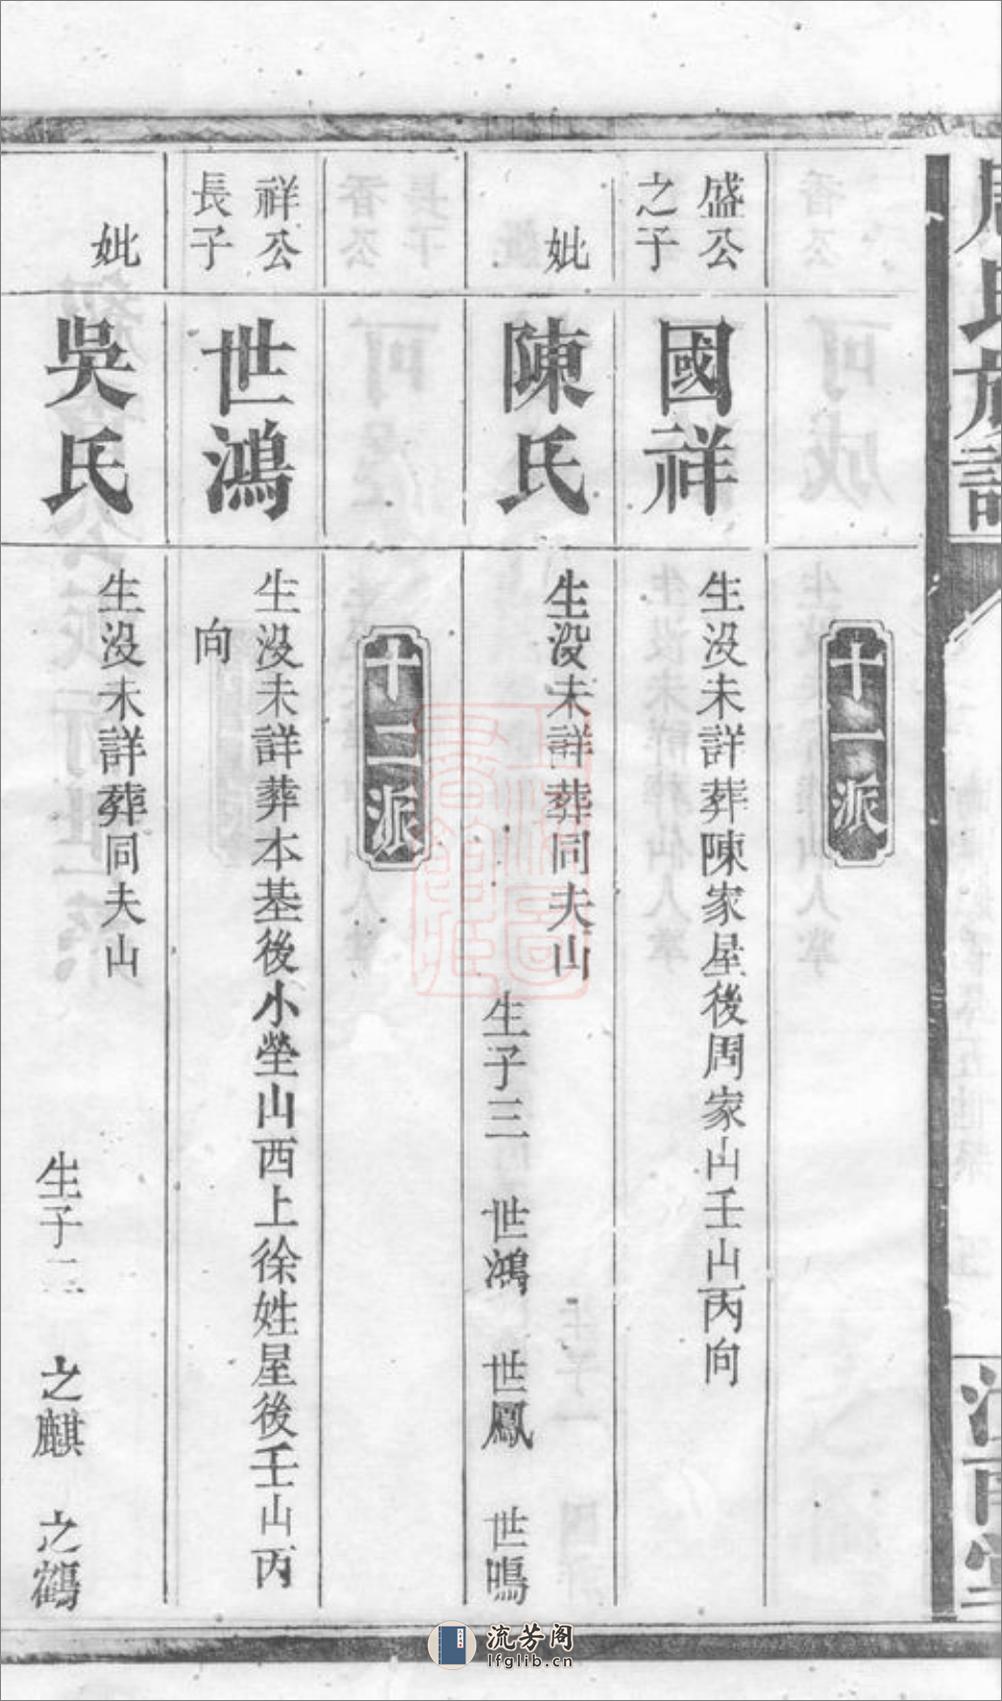 周氏族譜
十一派
盛公之子
國祥
生没未詳葬陳家屋後周家山壬山丙向
妣
陳氏
生没未詳葬同夫山
生子三 世鴻 世鳳 世鳴
十二派
祥公長子
世鴻
生没未詳葬本基後小塋山西上徐姓屋後壬山丙
向
妣
吳氏
生没未詳葬同夫山
生子二 之麒 之鶴
流芳阁
lfglib.cn